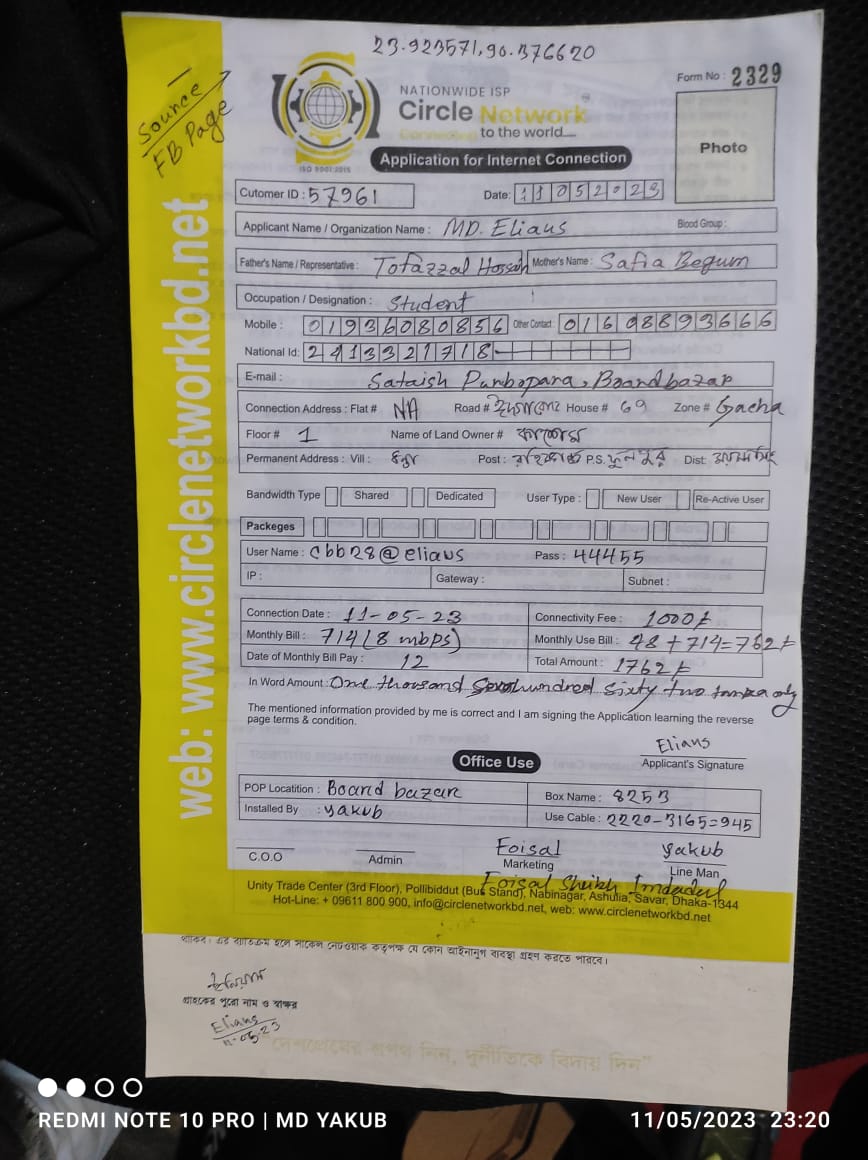 23.923571,90.376620
Source
FB Page
NATIONWIDE ISP
Circle Network
Connecting to the world....
ISO 9001:2015
Form No : 2329
Photo
Application for Internet Connection
Cutomer ID : 57961 Date: 11052023
Applicant Name / Organization Name : MD. Eliaus Blood Group :
Father's Name / Representative : Tofazzal Hossain Mother's Name : Safia Begum
Occupation / Designation : Student
Mobile : 01936080856 Other Contact : 01608893666
National Id: 2413321718
E-mail : Sataish Purbopara, Boardbazar
Connection Address : Flat # NA Road # House # 69 Zone # Gacha
Floor # 1 Name of Land Owner # কাশেম
Permanent Address : Vill : Post : P.S. ফুলপুর Dist:
Bandwidth Type Shared Dedicated User Type : New User Re-Active User
Packeges
User Name : cbb28@eliaus Pass : 44455
IP : Gateway : Subnet :
Connection Date : 11-05-23 Connectivity Fee : 1000/-
Monthly Bill : 714 (8 mbps) Monthly Use Bill : 48+714=762/-
Date of Monthly Bill Pay : 12 Total Amount : 1762/-
In Word Amount : One thousand hundred sixty two tamka only
The mentioned information provided by me is correct and I am signing the Application learning the reverse
page terms & condition.
Elians
Applicant's Signature
Office Use
POP Locatition : Board bazar Box Name : 8253
Installed By : yakub Use Cable : 2220-3165=945
Foisal yakub
C.O.O Admin Marketing Line Man
Foisal Sheikh Imdadul
Unity Trade Center (3rd Floor), Pollibiddut (Bus Stand), Nabinagar, Ashulia, Savar, Dhaka-1344
Hot-Line: + 09611 800 900, info@circlenetworkbd.net, web: www.circlenetworkbd.net
web: www.circlenetworkbd.net
থাকিব। এর ব্যতিক্রম হলে সার্কেল নেটওয়ার্ক কতৃপক্ষ যে কোন আইনানুগ ব্যবস্থা গ্রহণ করতে পারবে।
ইলিয়াস
গ্রাহকের পুরো নাম ও স্বাক্ষর
Elians
11-05-23
"দেশপ্রেমের শপথ নিন, দুর্নীতিকে বিদায় দিন"
REDMI NOTE 10 PRO | MD YAKUB 11/05/2023 23:20